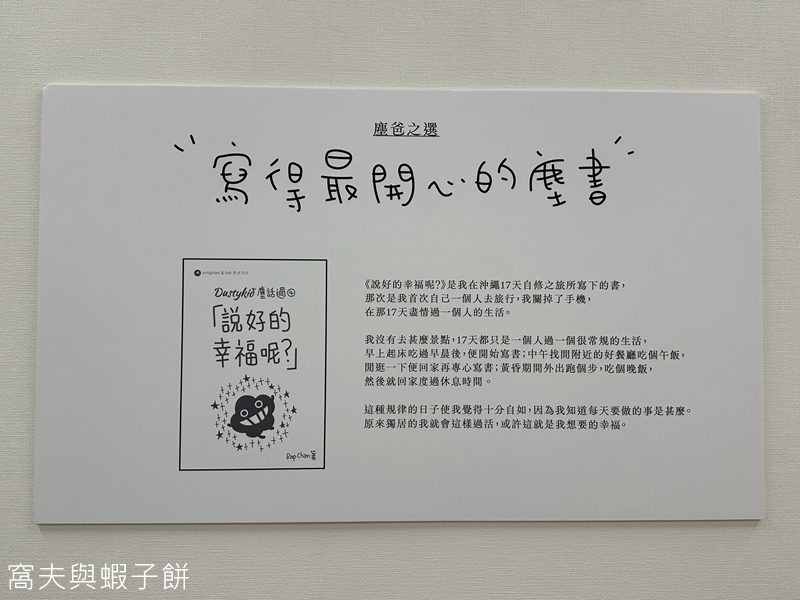 塵爸之選
寫得最開心的塵書
enlighten & fish 亮光文化
Dustykid 塵話過④
「說好的
幸福呢?」
Rap Chan著
《說好的幸福呢?》是我在沖繩17天自修之旅所寫下的書,
那次是我首次自己一個人去旅行,我關掉了手機,
在那17天盡情過一個人的生活。
我沒有去甚麼景點,17天都只是一個人過一個很常規的生活,
早上起床吃過早晨後,便開始寫書;中午找間附近的好餐廳吃個午飯,
閒逛一下便回家再專心寫書;黃昏期間外出跑個步,吃個晚飯,
然後就回家度過休息時間。
這種規律的日子使我覺得十分自如,因為我知道每天要做的事是甚麼。
原來獨居的我就會這樣過活,或許這就是我想要的幸福。
窩夫與蝦子餅